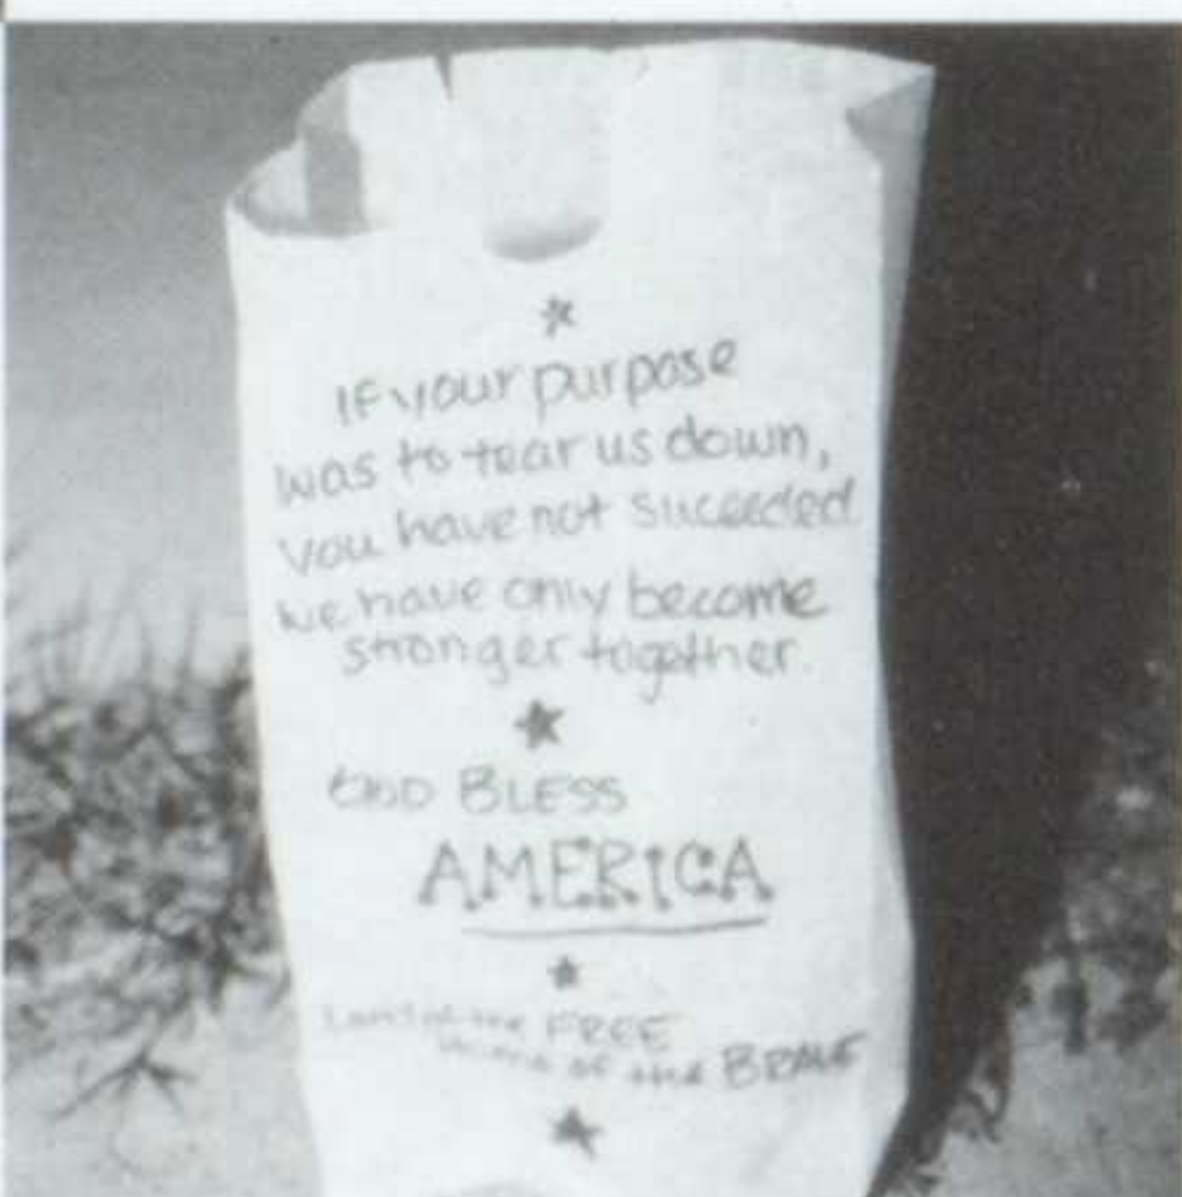 If your purpose
was to tear us down,
you have not succeeded
we have only become
stronger together.
GOD BLESS
AMERICA
Land of the FREE
Home of the BRAVE